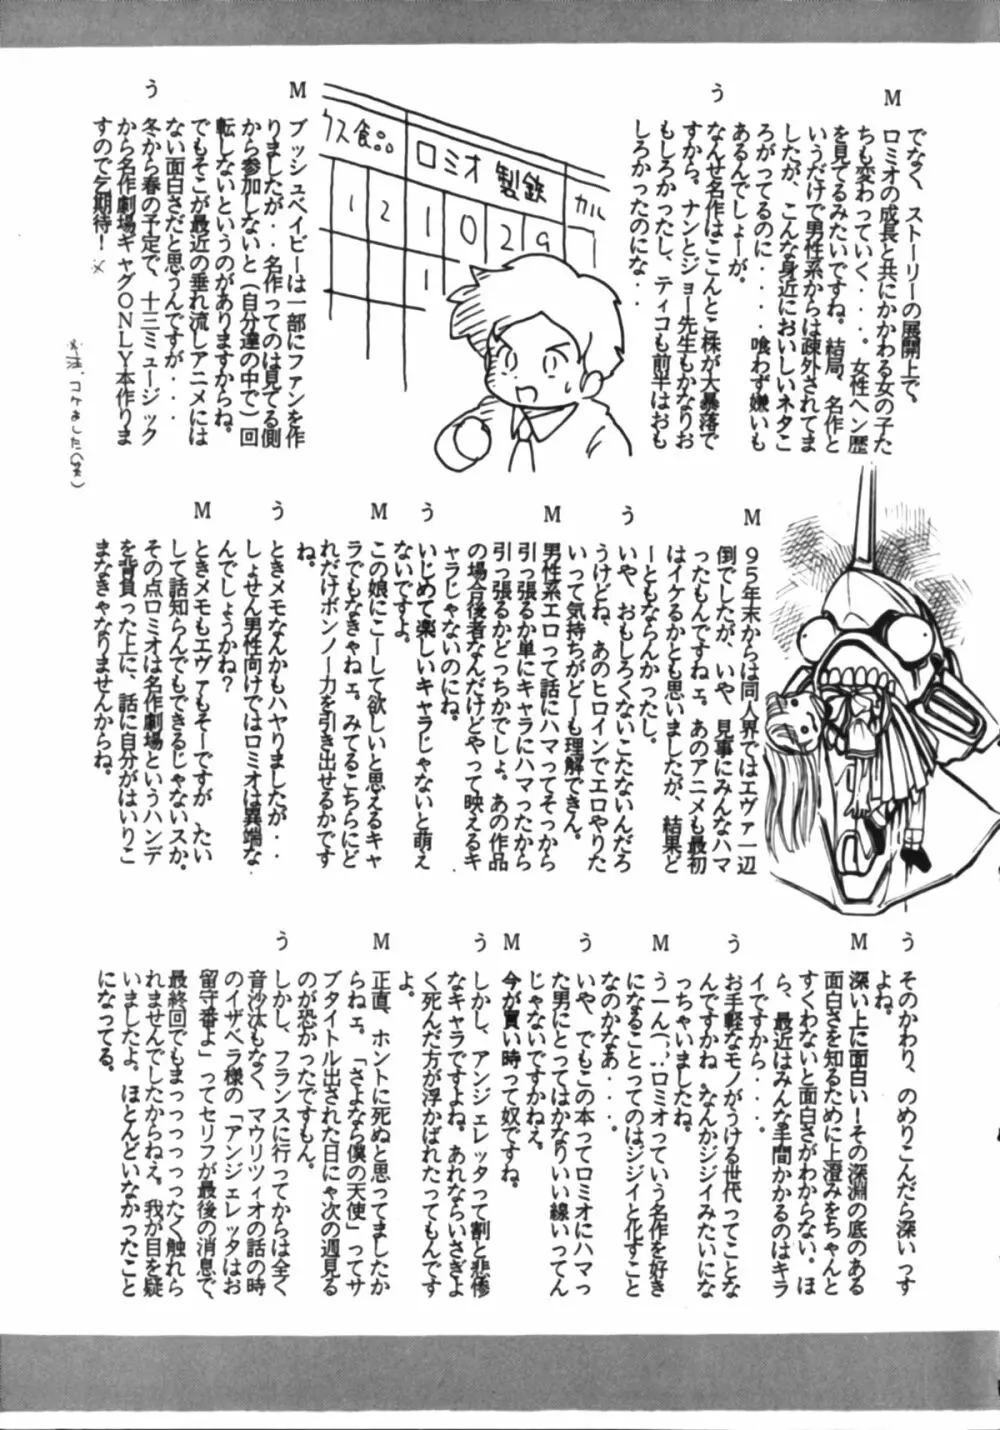 でなく、ストーリーの展開上で、
M
ロミオの成長と共にかかわる女の子た
ちも変わっていく・・・。女性ヘン歴
を見てるみたいですね。結局、名作と
いうだけで男性系からは疎外されてま
したが、こんな身近においしいネタこ
ろがってるのに・・・・喰わず嫌いも
あるんでしょーが。
う
なんせ名作はここんとこ株が大暴落で
すから。ナンとジョー先生もかなりお
もしろかったし、ティコも前半はおも
しろかったのにな・・
クス食品
ロミオ製鉄
カル
1 2 1 0 2 9
1
M
ブッシュベイビーは一部にファンを作
りましたが・・名作ってのは見てる側
から参加しないと(自分達の中で)回
転しないというのがありますからね。
でもそこが最近の垂れ流しアニメには
ない面白さだと思うんですが・・・
う
冬から春の予定で、十三ミュージック
から名作劇場ギャグONLY本作りま
すので乞期待！
※注、コケました(笑)
M
95年末からは同人界ではエヴァ一辺
倒でしたが、いや、見事にみんなハマ
ったもんですねェ。あのアニメも最初
はイケるかとも思いましたが、結果ど
ーともならんかったし。
う
いや、おもしろくないこたないんだろ
うけどね、あのヒロインでエロやりた
いって気持ちがどーも理解できん。
M
男性系エロって話にハマってそっから
引っ張るか単にキャラにハマったから
引っ張るかどっちかでしょ。あの作品
の場合後者なんだけどやって映えるキ
ャラじゃないのにね。
う
いじめて楽しいキャラじゃないと萌え
ないですよ。
M
この娘にこーして欲しいと思えるキャ
ラでもなきゃねェ。みてるこちらにど
れだけボンノー力を引き出せるかです
ね。
う
ときメモなんかもハヤりましたが・・
しょせん男性向けではロミオは異端な
んでしょうかね？
M
ときメモもエヴァもそーですが、たい
して話知らんでもできるじゃないスか。
その点ロミオは名作劇場というハンデ
を背負った上に、話に自分がはいりこ
まなきゃなりませんからね。
う
そのかわり、のめりこんだら深いっす
よね。
M
深い上に面白い！その深淵の底のある
面白さを知るために上澄みをちゃんと
すくわないと面白さがわからない。ほ
ら、最近はみんな手間かかるのはキラ
イですから・・・。
う
お手軽なモノがうける世代ってことな
んですかね。なんかジジイみたいにな
っちゃいましたね。
M
うーん(…)ロミオっていう名作を好き
になることってのはジジイと化すこと
なのかなあ・・・。
う
いや、でもこの本ってロミオにハマっ
た男にとってはかなりいい線いってん
じゃないですかねえ。
M
今が買い時って奴ですね。
う
しかし、アンジェレッタって割と悲惨
なキャラですよね。あれならいさぎよ
く死んだ方が浮かばれたってもんです
よ。
M
正直、ホントに死ぬと思ってましたか
らねェ。「さよなら僕の天使」ってサ
ブタイトル出された日にゃ次の週見る
のが恐かったですもん。
う
しかし、フランスに行ってからは全く
音沙汰もなく、マウリツィオの話の時
のイザベラ様の「アンジェレッタはお
留守番よ」ってセリフが最後の消息で、
最終回でもまっっっっったく触れら
れませんでしたからねえ。我が目を疑
いましたよ。ほとんどいなかったこと
になってる。